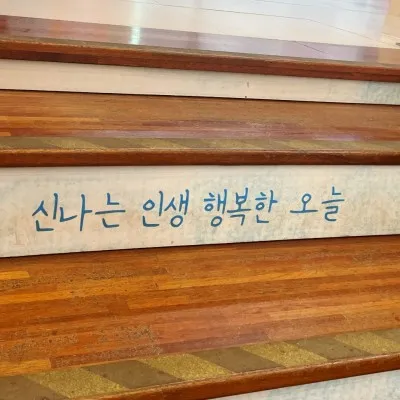 신나는 인생 행복한 오늘